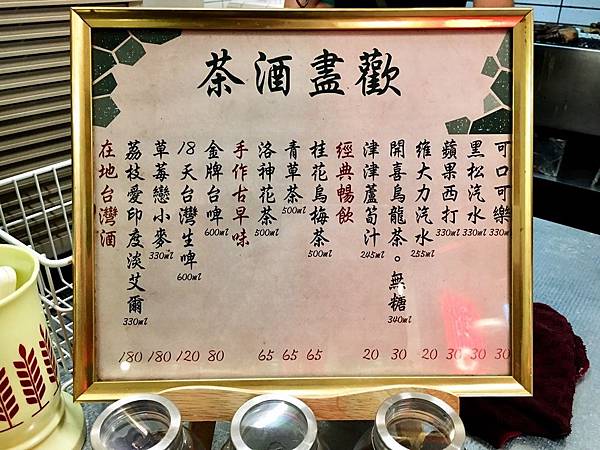 歡盡酒茶
可口可樂 330ml 30
黑松汽水 330ml 30
蘋果西打 330ml 30
維大力汽水 255ml 20
開喜烏龍茶。無糖 340ml 30
津津蘆筍汁 245ml 20
經典暢飲
桂花烏梅茶 500ml 65
青草茶 500ml 65
洛神花茶 500ml 65
手作古早味
金牌台啤 600ml 80
18天台灣生啤 600ml 120
草莓戀小麥 330ml 180
荔枝愛印度淡艾爾 330ml 180
在地台灣酒